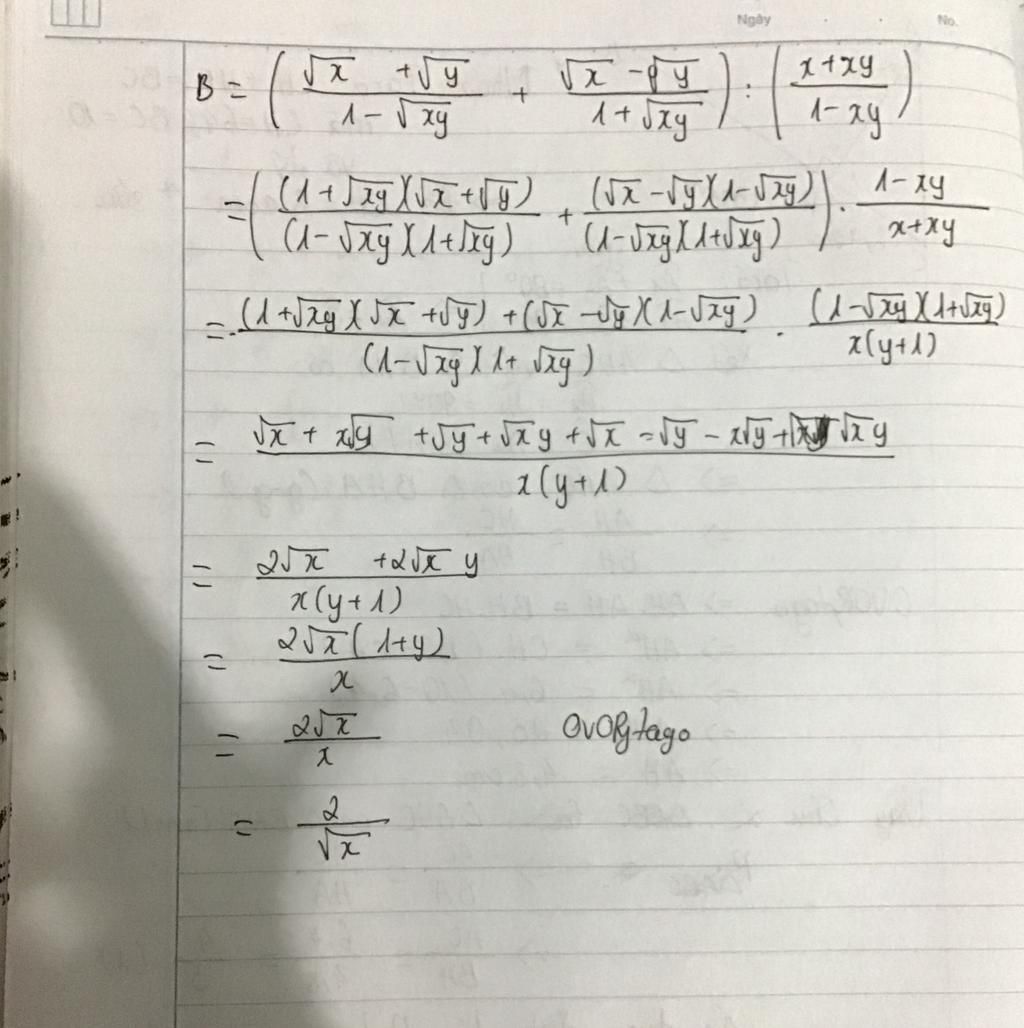 Ngày No.
B = ( (√x + √y)/(1 - √xy) + (√x - √y)/(1 + √xy) ) : ( (x + xy)/(1 - xy) )
= ( (1 + √xy)(√x + √y)/(1 - √xy)(1 + √xy) + (√x - √y)(1 - √xy)/(1 - √xy)(1 + √xy) ) . (1 - xy)/(x + xy)
= ((1 + √xy)(√x + √y) + (√x - √y)(1 - √xy))/((1 - √xy)(1 + √xy)) . ((1 - √xy)(1 + √xy))/(x(y + 1))
= (√x + x√y + √y + √x y + √x - √y - x√y + √x y)/(x(y + 1))
= (2√x + 2√x y)/(x(y + 1))
= (2√x (1 + y))/x
= (2√x)/x OvOPytago
= 2/√x